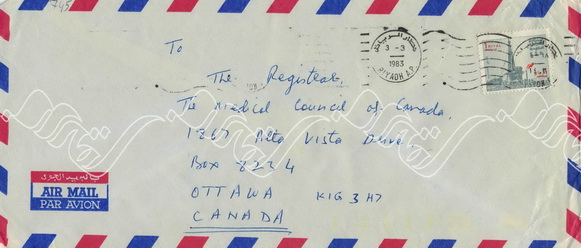 745
To
The Registrar,
The Medical Council of Canada,
1867 Alta Vista Drive,
Box 8234
OTTAWA K1G 3H7
CANADA
3 - 3
1983
RIYADH A.P.
بالبريد الجوى
AIR MAIL
PAR AVION